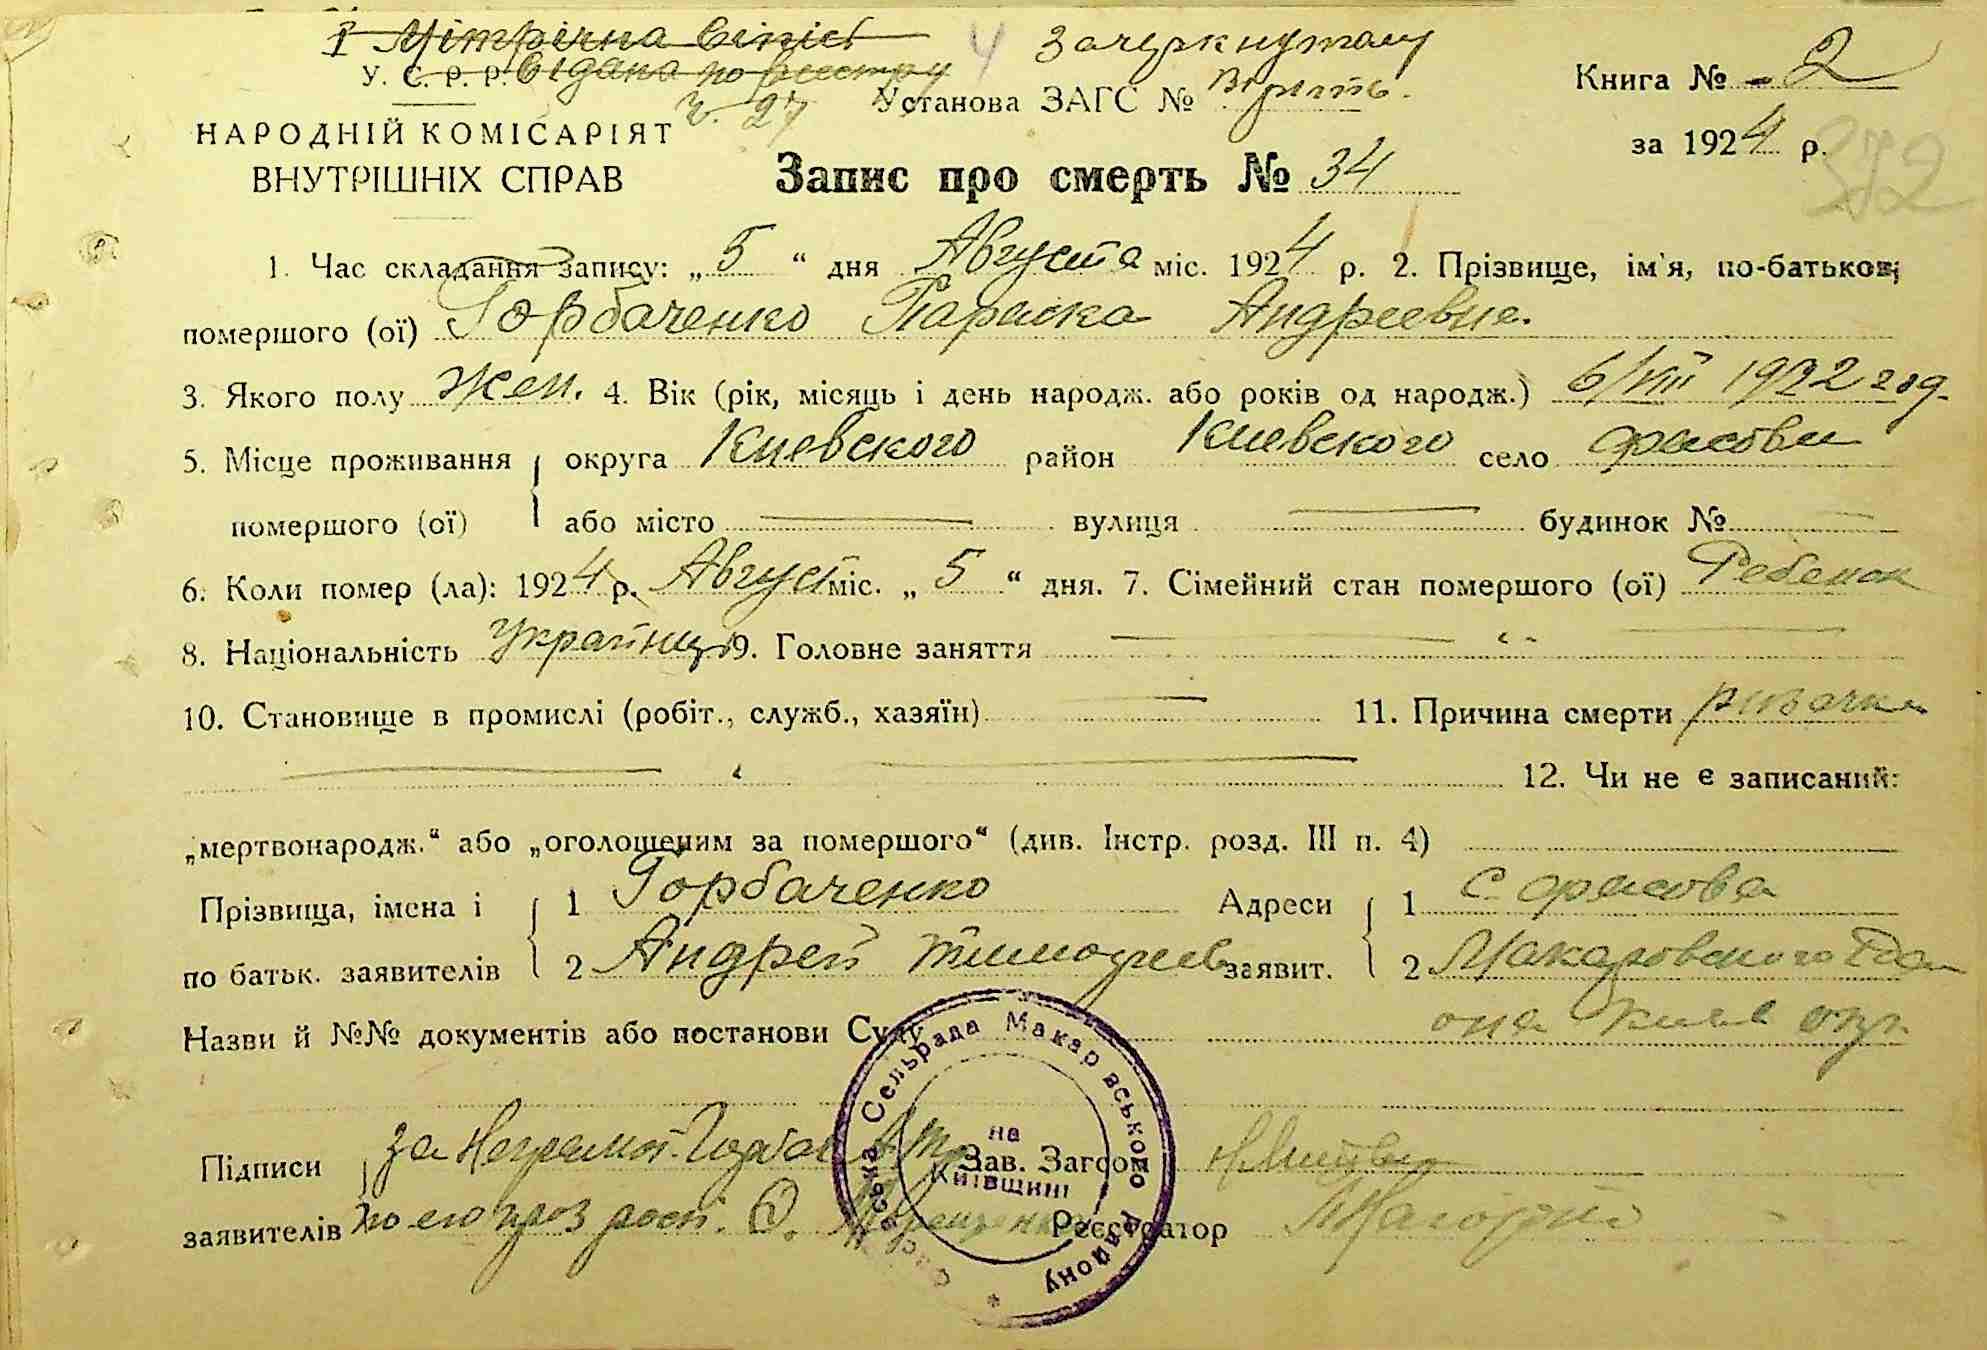 I Метрична Випісь зачеркнутому
У. С. Р. Р. Видана по реестру 4 Вірить.
ч. 27 Установа ЗАГС № Книга № 2
НАРОДНІЙ КОМІСАРІЯТ за 1924 р.
ВНУТРІШНІХ СПРАВ Запис про смерть № 34 372
1. Час складання запису: „5“ дня Августа міс. 1924 р. 2. Прізвище, ім'я, по-батькові
помершого (ої) Горбаченко Параска Андреевна.
3. Якого полу жен. 4. Вік (рік, місяць і день народж. або років од народж.) 6/VIII 1922 год.
5. Місце проживання округа Киевского район Киевского село Фасови
помершого (ої) або місто — вулиця — будинок № —
6. Коли помер (ла): 1924 р. Август міс. „5“ дня. 7. Сімейний стан помершого (ої) Ребенок
8. Національність Українці 9. Головне заняття — „ —
10. Становище в промислі (робіт., служб., хазяїн) — 11. Причина смерти різачка
— „ — 12. Чи не є записаний:
„мертвонародж.“ або „оголошеним за помершого“ (див. Інстр. розд. III п. 4)
Прізвища, імена і 1 Горбаченко Адреси 1 с. Фасова
по батьк. заявителів 2 Андрей Тимофеев заявит. 2 Макаровского Рай
Назви й №№ документів або постанови Суду она Киев окр.
Підписи за Неграмот. Горбач А Т Зав. Загсом
заявителів по его проз росп. О. Терещенко Реєстратор
Фасівська Сельрада Макарівського Району
на
Київщині